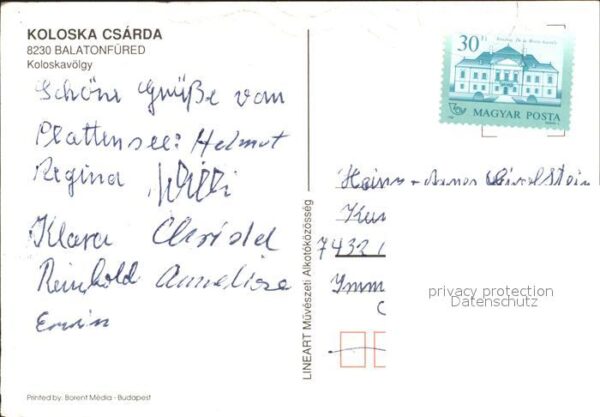 KOLOSKA CSÁRDA
8230 BALATONFÜRED
Koloskavölgy
Schöne Grüße vom
Plattensee: Helmut
Regina Willi
Klara Christel
Reinhold Anneliese
Erwin
Printed by: Borent Média - Budapest
LINEART Művészeti Alkotóközösség
30 Ft
MAGYAR POSTA
Heinz
Kur
7432
Imm
privacy protection
Datenschutz